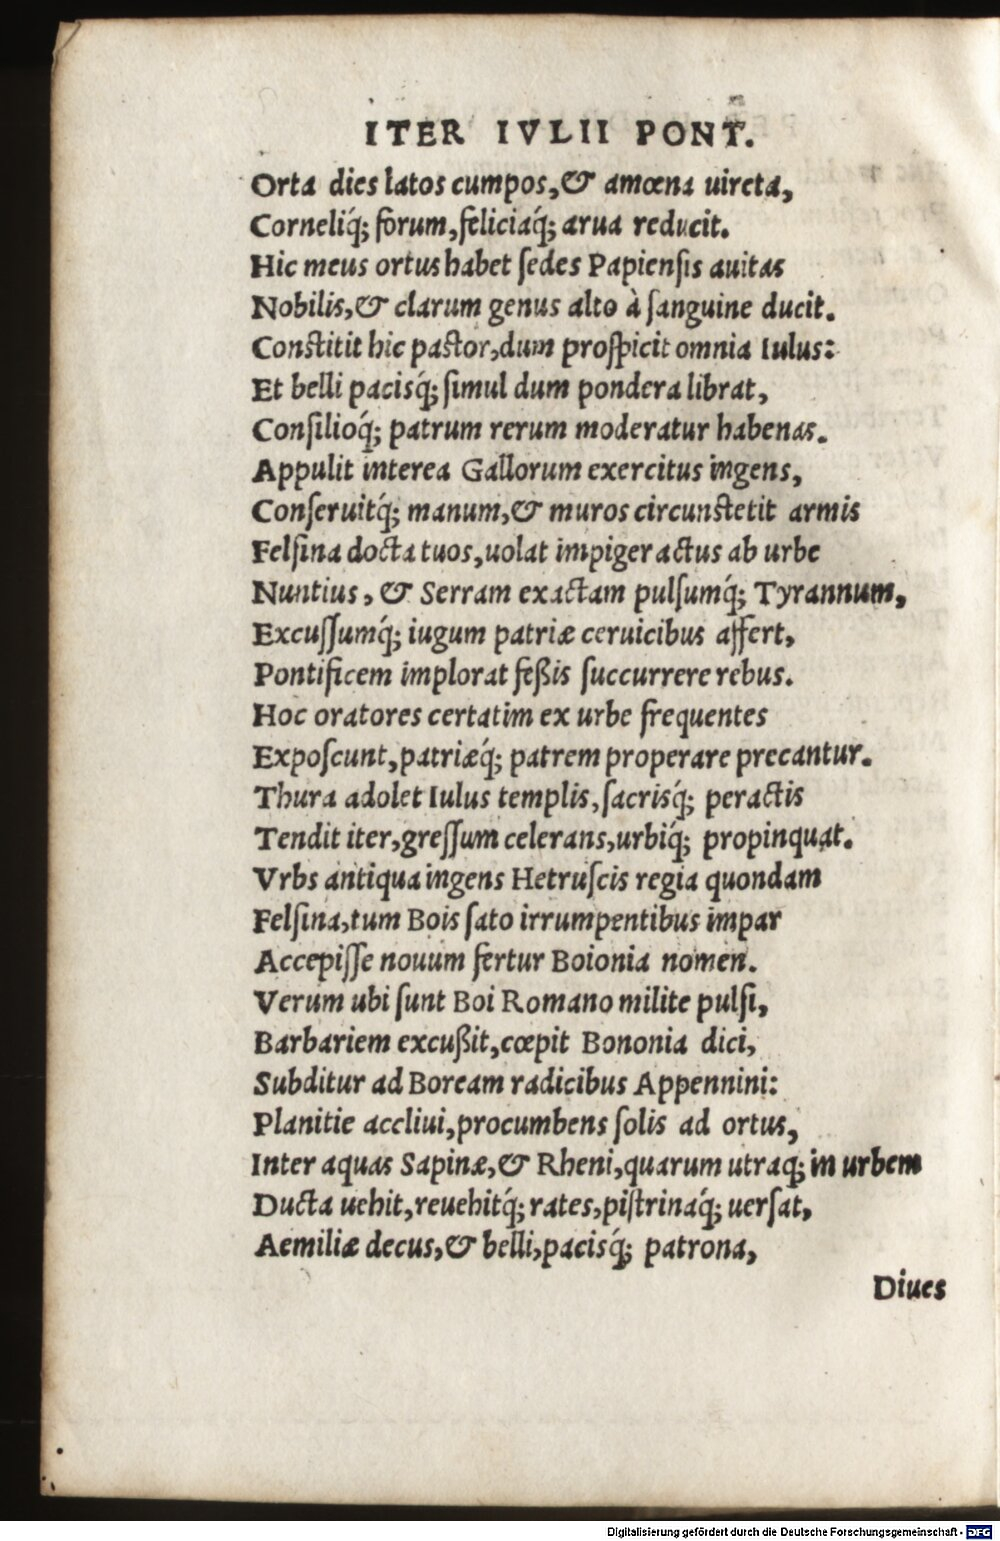 ITER IVLII PONT.
Orta dies latos cumpos,& amœna uireta,
Corneliq́; forum,feliciaq́; arua reducit.
Hic meus ortus habet ſedes Papienſis auitas
Nobilis,& clarum genus alto à ſanguine ducit.
Conſtitit hic paſtor,dum proſpicit omnia Iulus:
Et belli pacisq́; ſimul dum pondera librat,
Conſilioq́; patrum rerum moderatur habenas.
Appulit interea Gallorum exercitus ingens,
Conſeruitq́; manum,& muros circunſtetit armis
Felſina docta tuos,uolat impiger actus ab urbe
Nuntius, & Serram exactam pulſumq́; Tyrannum,
Excuſſumq́; iugum patriæ ceruicibus affert,
Pontificem implorat feßis ſuccurrere rebus.
Hoc oratores certatim ex urbe frequentes
Expoſcunt,patriæq́; patrem properare precantur.
Thura adolet Iulus templis,ſacrisq́; peractis
Tendit iter,greſſum celerans,urbiq́; propinquat.
Vrbs antiqua ingens Hetruſcis regia quondam
Felſina,tum Bois ſato irrumpentibus impar
Accepiſſe nouum fertur Boionia nomen.
Verum ubi ſunt Boi Romano milite pulſi,
Barbariem excußit,cœpit Bononia dici,
Subditur ad Boream radicibus Appennini:
Planitie accliui,procumbens ſolis ad ortus,
Inter aquas Sapinæ,& Rheni,quarum utraq; in urbem
Ducta uehit,reuehitq́; rates,piſtrinaq́; uerſat,
Aemiliæ decus,& belli,pacisq́; patrona,
Diues
Digitalisierung gefördert durch die Deutsche Forschungsgemeinschaft - DFG